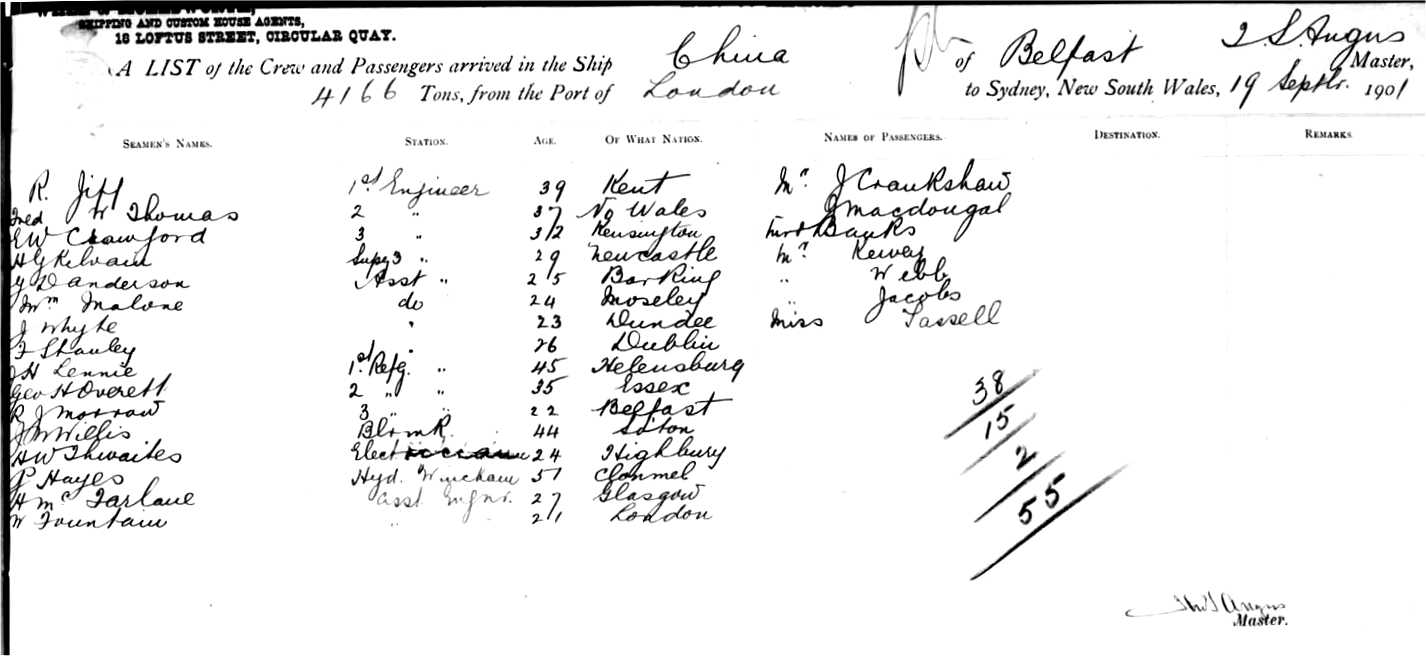 SHIPPING AND CUSTOM HOUSE AGENTS,
18 LOFTUS STREET, CIRCULAR QUAY.
A LIST of the Crew and Passengers arrived in the Ship China of Belfast T. S. Angus Master,
4166 Tons, from the Port of London to Sydney, New South Wales, 19 Septbr. 1901
SEAMEN'S NAMES. STATION. AGE. OF WHAT NATION. NAMES OF PASSENGERS. DESTINATION. REMARKS.
R. 1st Engineer 39 Kent Mr. J Crankshaw
Fred W Thomas 2 " 37 No Wales J Macdougal
EW Crawford 3 " 32 Kensington Banks
H G Kilvain Supy 3 " 29 Newcastle Mr. Kewey
D Anderson Asst " 25 Barking " Webb
Wm Malone do 24 Moseley " Jacobs
J Whyte " 23 Dundee Miss Tassell
F Stanley " 26 Dublin
J H Lennie 1st Refg. " 45 Helensburg
Geo H Overett 2 " " 35 Essex
R J Morrow 3 " " 22 Belfast
J W Willis 44 Soton
H W Thwaites Elect 24 Highbury
P Hayes Hyd. Winchman 51 Clonmel
H McFarlane Asst Engnr. 27 Glasgow
W Fountain " 21 London
38
15
2
55
Thos S Angus
Master.